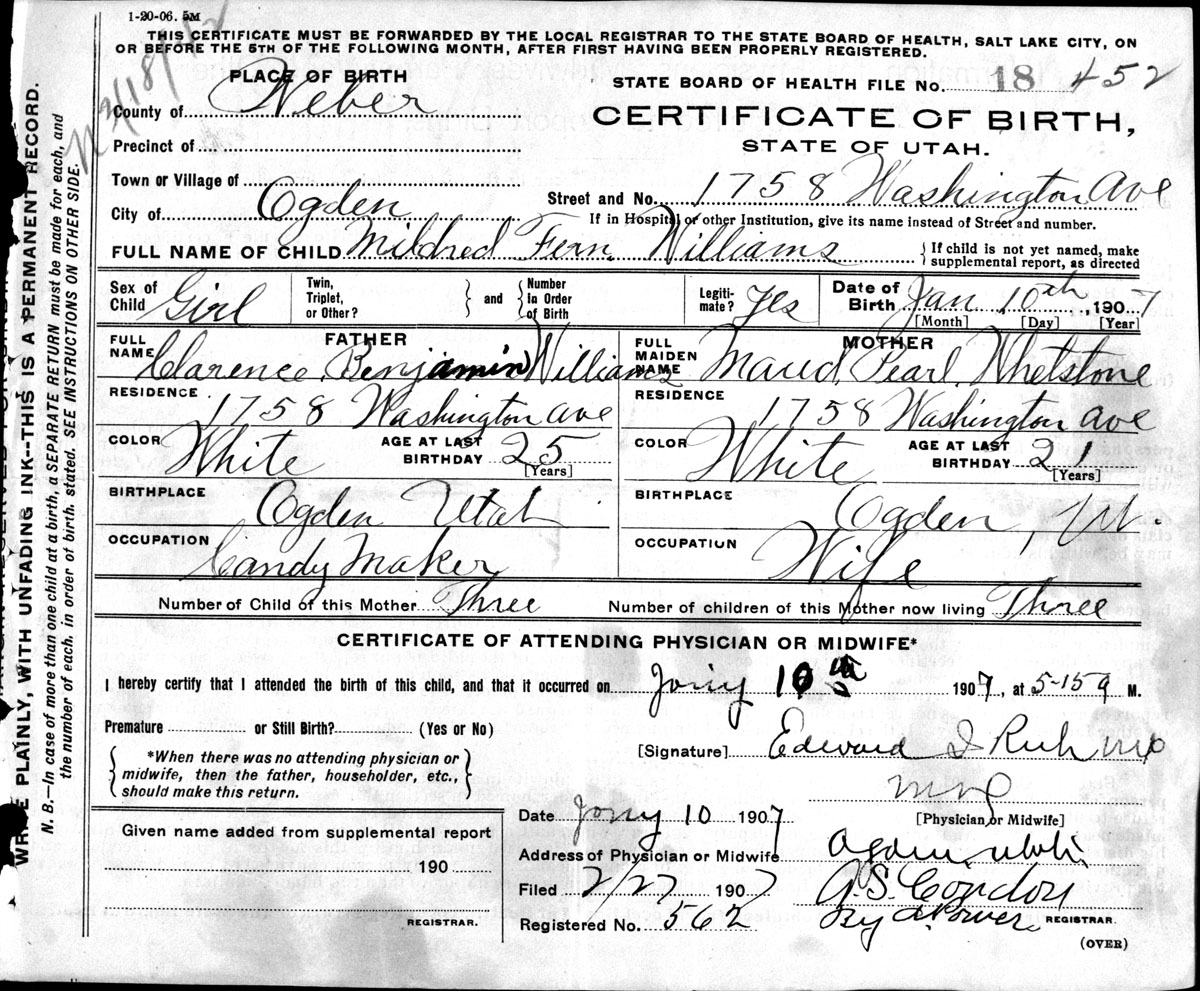 1-20-06. 5M
THIS CERTIFICATE MUST BE FORWARDED BY THE LOCAL REGISTRAR TO THE STATE BOARD OF HEALTH, SALT LAKE CITY, ON
OR BEFORE THE 5TH OF THE FOLLOWING MONTH, AFTER FIRST HAVING BEEN PROPERLY REGISTERED.
PLACE OF BIRTH
STATE BOARD OF HEALTH FILE No. 18 452
County of Weber
CERTIFICATE OF BIRTH,
Precinct of
STATE OF UTAH.
Town or Village of
Street and No. 1758 Washington Ave
City of Ogden
If in Hospital or other Institution, give its name instead of Street and number.
FULL NAME OF CHILD Mildred Fern Williams
{ If child is not yet named, make
supplemental report, as directed
Sex of Child Girl
Twin, Triplet, or Other? } and { Number In Order of Birth
Legiti-mate? Yes
Date of Birth Jan 10th, 1907
[Month] [Day] [Year]
FATHER
FULL NAME Clarence Benjamin Williams
MOTHER
FULL MAIDEN NAME Maud Pearl Whetstone
RESIDENCE 1758 Washington Ave
RESIDENCE 1758 Washington Ave
COLOR White AGE AT LAST BIRTHDAY 25 [Years]
COLOR White AGE AT LAST BIRTHDAY 21 [Years]
BIRTHPLACE Ogden Utah
BIRTHPLACE Ogden, Ut.
OCCUPATION Candy Maker
OCCUPATION Wife
Number of Child of this Mother Three Number of children of this Mother now living Three
CERTIFICATE OF ATTENDING PHYSICIAN OR MIDWIFE*
I hereby certify that I attended the birth of this child, and that it occurred on Jany 10th 1907, at 5-15 a M.
Premature or Still Birth? (Yes or No)
[Signature] Edward I Rich MD
{ *When there was no attending physician or
midwife, then the father, householder, etc.,
should make this return. }
MD
[Physician or Midwife]
Date Jany 10 1907
Given name added from supplemental report
190
REGISTRAR.
Address of Physician or Midwife Ogden, Utah.
Filed 2/27 1907 A.S. Condon
Registered No. 562 By A. Power REGISTRAR.
(OVER)
WRITE PLAINLY, WITH UNFADING INK--THIS IS A PERMANENT RECORD.
N. B.—In case of more than one child at a birth, a SEPARATE RETURN must be made for each, and
the number of each, in order of birth, stated. SEE INSTRUCTIONS ON OTHER SIDE.